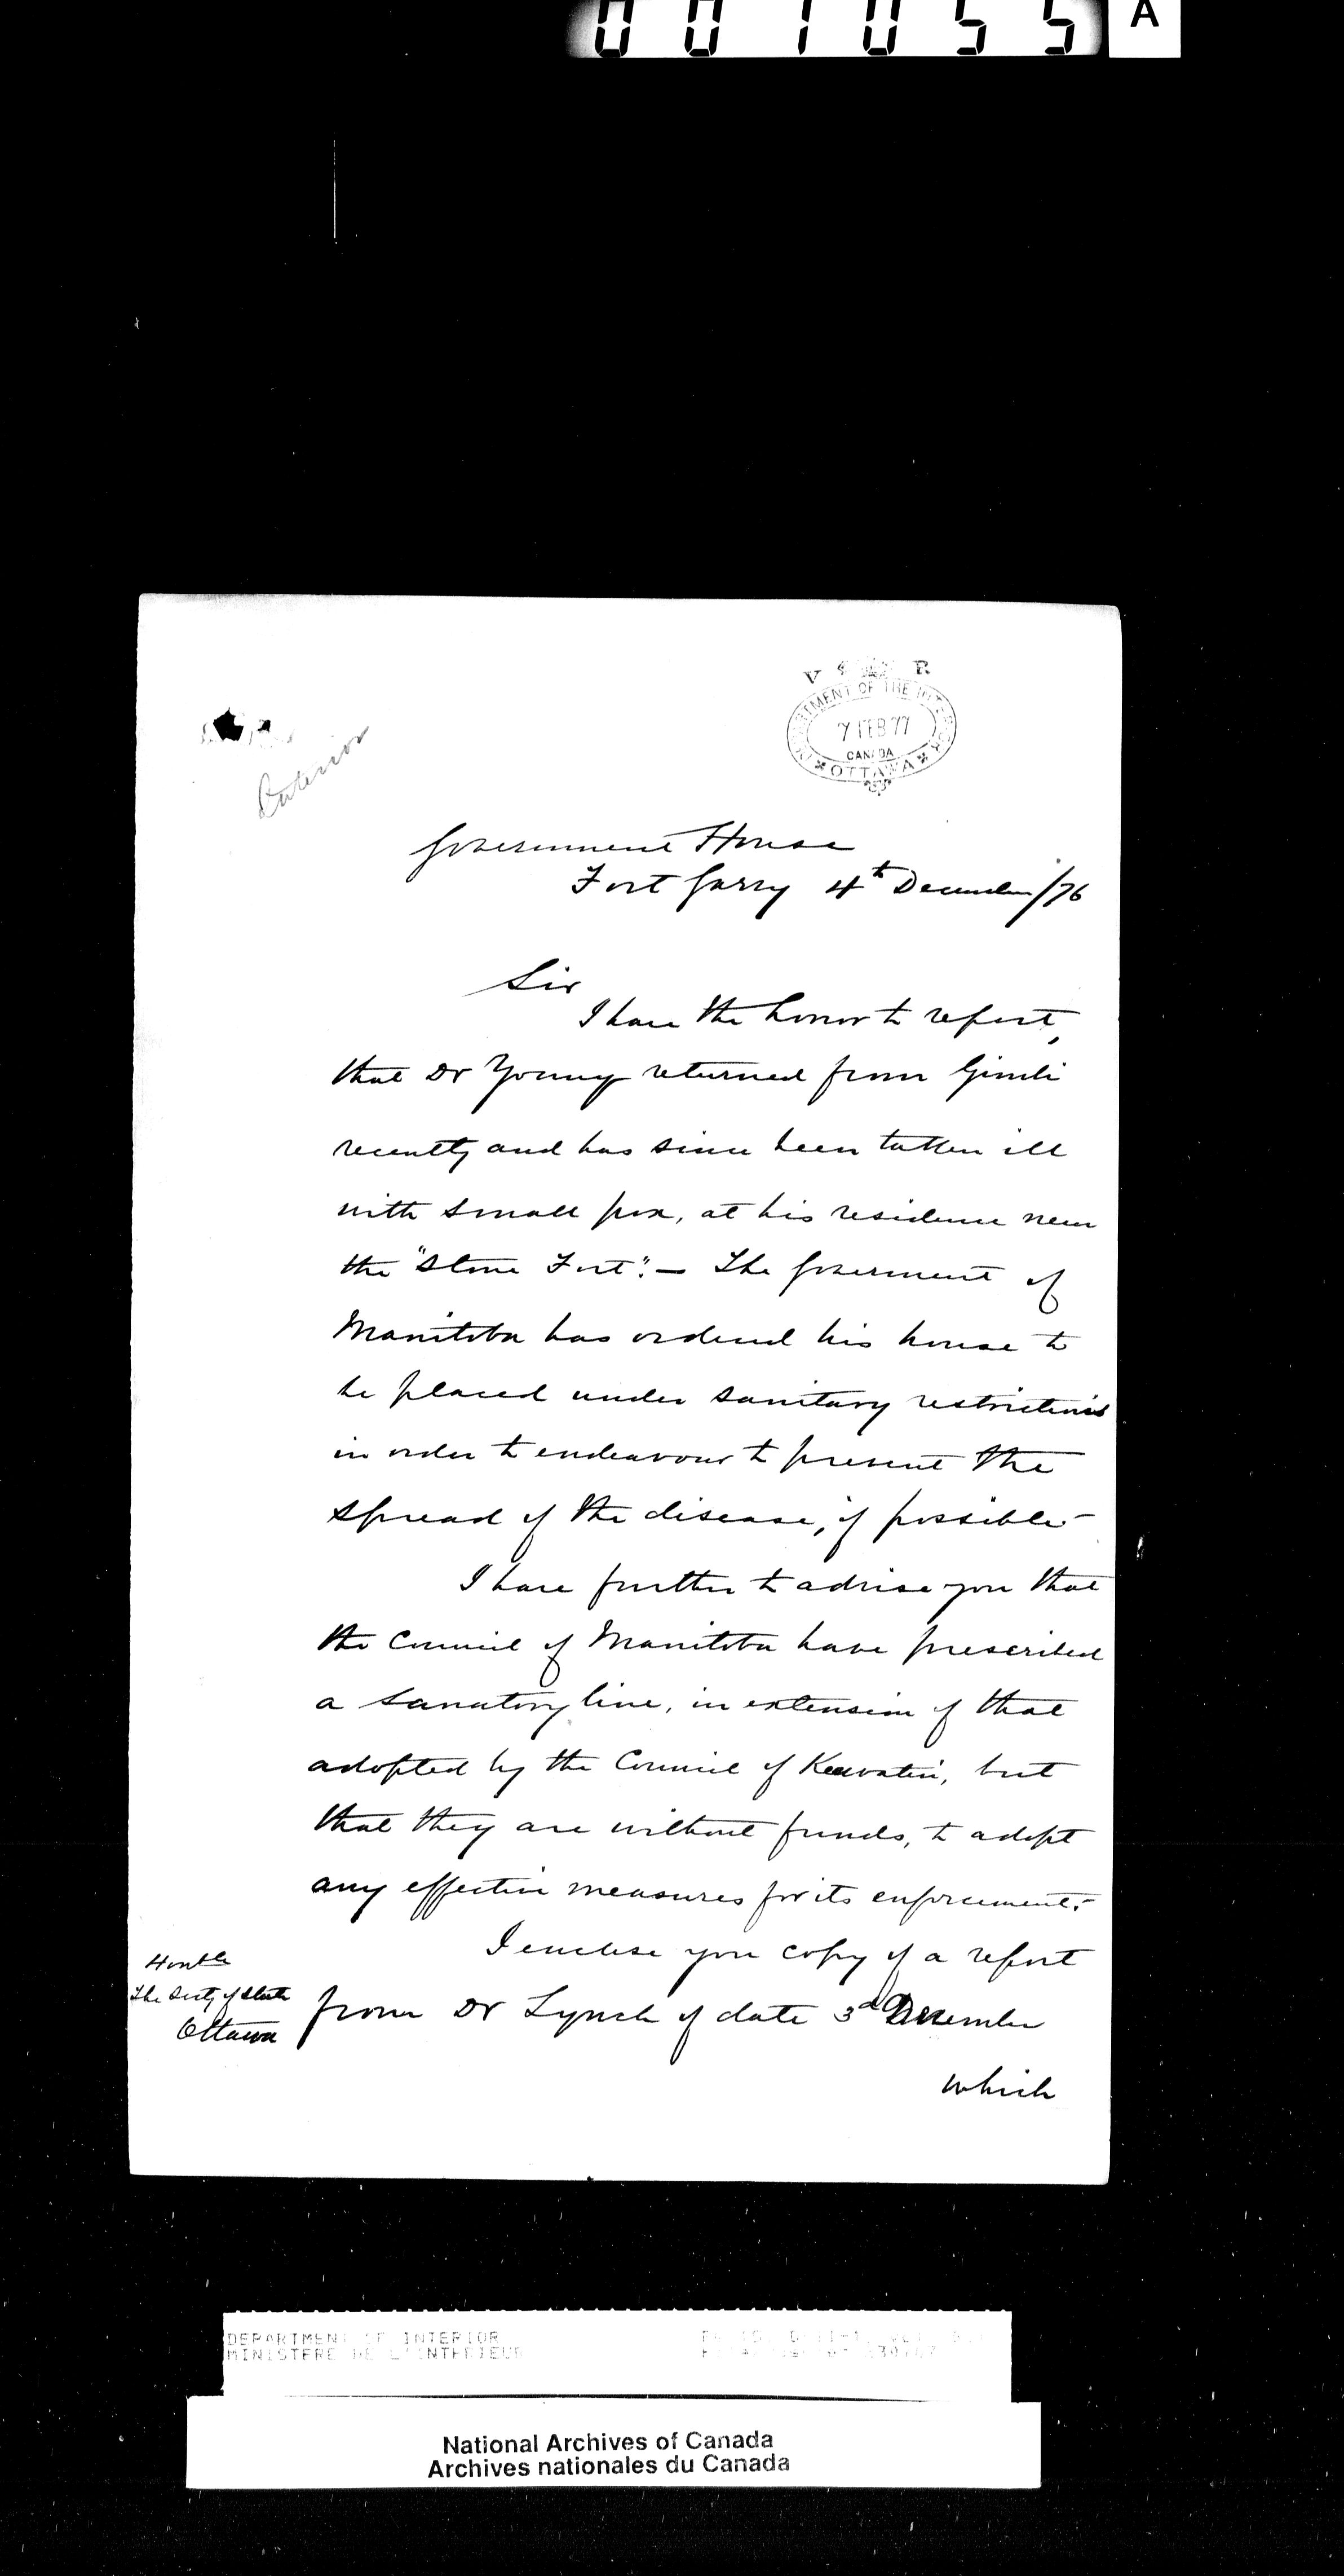 001055 A
V R
DEPARTMENT OF THE INTERIOR
7 FEB 77
CANADA
OTTAWA
Interior
Government House
Fort Garry 4th December/76
Sir
I have the honor to report,
that Dr Young returned from Gimli
recently and has since been taken ill
with small pox, at his residence near
the "Stone Fort". — The Government of
Manitoba has ordered his house to
be placed under sanitary restrictions
in order to endeavour to prevent the
spread of the disease, if possible -
I have further to advise you that
the Council of Manitoba have prescribed
a sanatory line, in extension of that
adopted by the Council of Keewatin, but
that they are without funds, to adopt
any effective measures for its enforcement.-
I enclose you copy of a report
from Dr Lynch of date 3d December
which
Honble
The Secty of State
Ottawa
DEPARTMENT OF INTERIOR
MINISTERE DE L'INTERIEUR
National Archives of Canada
Archives nationales du Canada